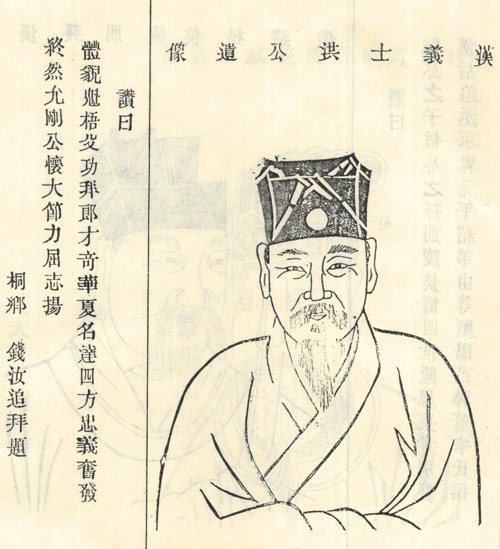 漢義士洪公遺像
讚曰
體貌魁梧以功拜郎才奇華夏名達四方忠義奮發
終然允剛公懷大節力屈志揚
桐鄉 錢汝追拜題